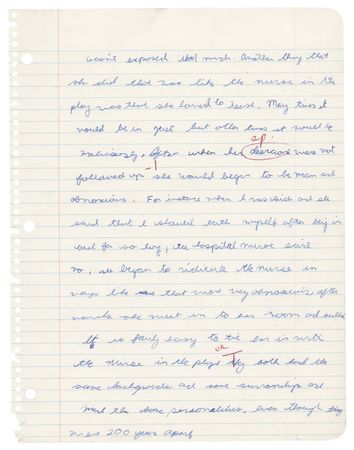 wasn't exposed that much. Another thing that
she did that was like the nurse in the
play was that she loved to tease. Many times it
would be in just but other times it would be
sp.
maliciously, often when her were not
followed up she would begin to be mean and
obnoxious. For instance when I was sick and she
said that I should bath myself after being in
bed for so long, the hospital nurse said
no, she began to ridicule the nurse in
ways like that were very obnoxious, after
wards she went in to her room and
It is fairly easy to tie her in with
the nurse in the play, they both had the
same backgrounds and same surroundings and
the same personalities, even though they
were 200 years apart